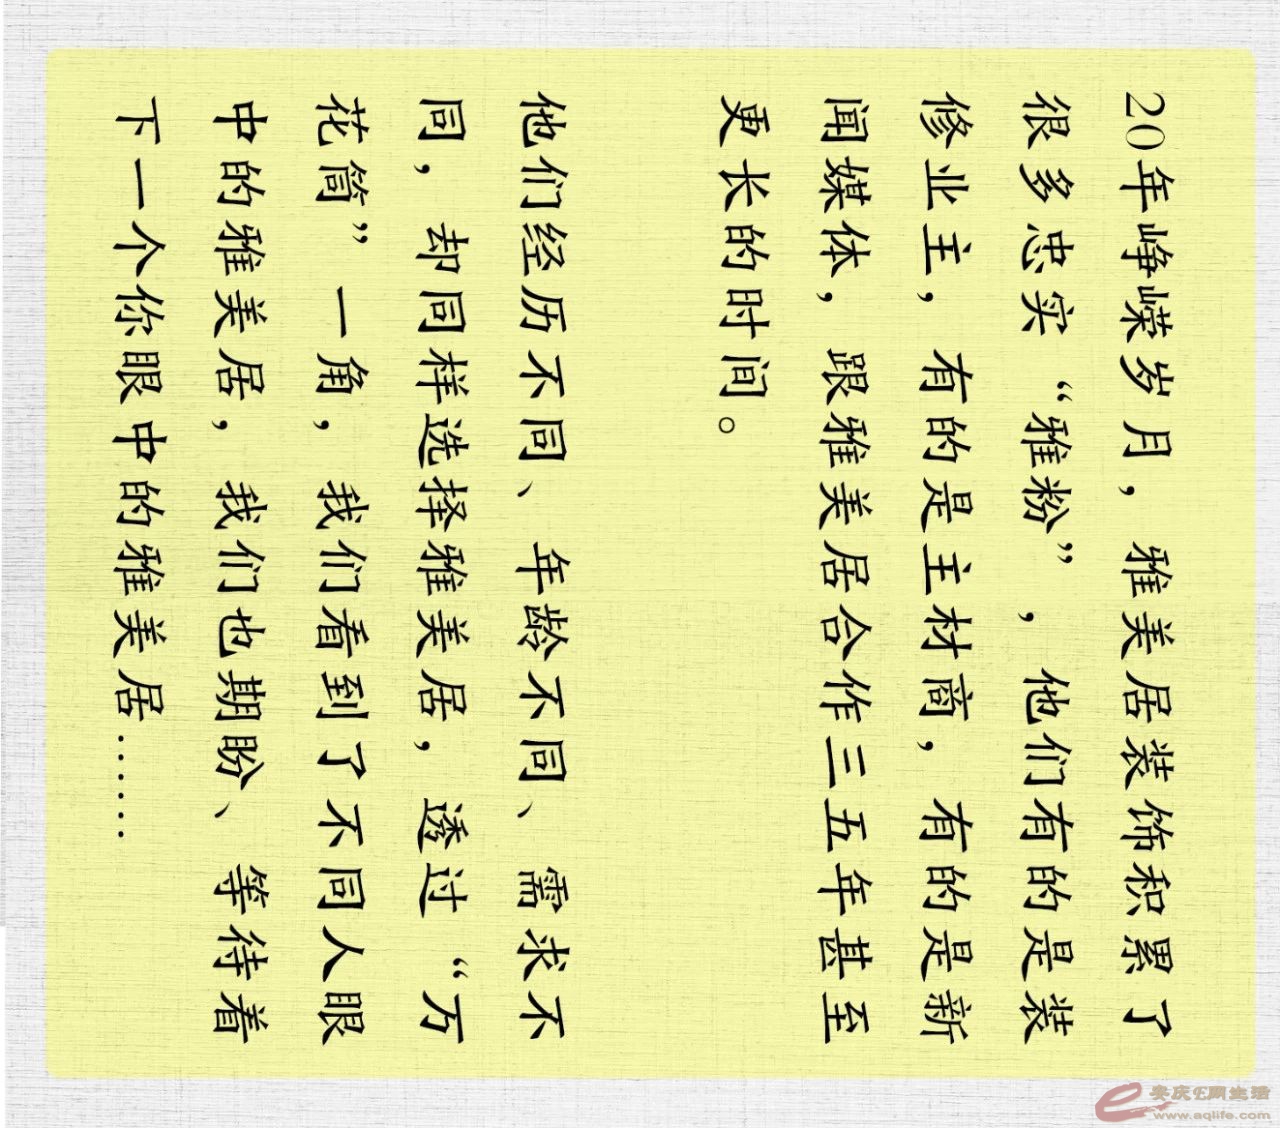 20年峥嵘岁月，雅美居装饰积累了
很多忠实“雅粉”，他们有的是装
修业主，有的是主材商，有的是新
闻媒体，跟雅美居合作三五年甚至
更长的时间。
他们经历不同、年龄不同、需求不
同，却同样选择雅美居，透过“万
花筒”一角，我们看到了不同人眼
中的雅美居，我们也期盼、等待着
下一个你眼中的雅美居……
安庆E网生活
www.aqlife.com